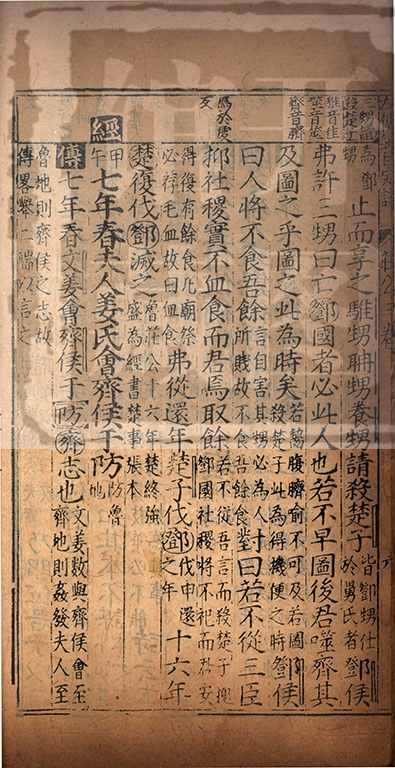 三甥請
殺楚子
騅音隹
齊音臍
為鄧甥止而享之騅甥聃甥養甥請殺楚子皆鄧甥仕於舅氏者鄧侯
弗許三甥曰亡鄧國者必此人也若不早圖後君噬齊其
及圖之乎圖之此為時矣若齧腹臍喻不可及若圖殺楚子此為得機便之時鄧侯
曰人將不食吾餘言自害其甥必為人所賤故不食吾餘食對曰若不從三臣
焉於虔反
抑社稷實不血食而君焉取餘若不從吾言而殺楚子抑鄧國社稷將不祀而君安
得復有餘食凡廟祭必存毛血故曰血食弗從還年楚子伐鄧伐申還之年十六年
楚復伐鄧滅之魯莊公十六年楚終強盛為經書楚事張本
經甲午七年春夫人姜氏會齊侯于防防魯地
傳七年春文姜會齊侯于防齊志也文姜數與齊侯會至齊地則姦發夫人至
魯地則齊侯之志故傳略舉二端以言之